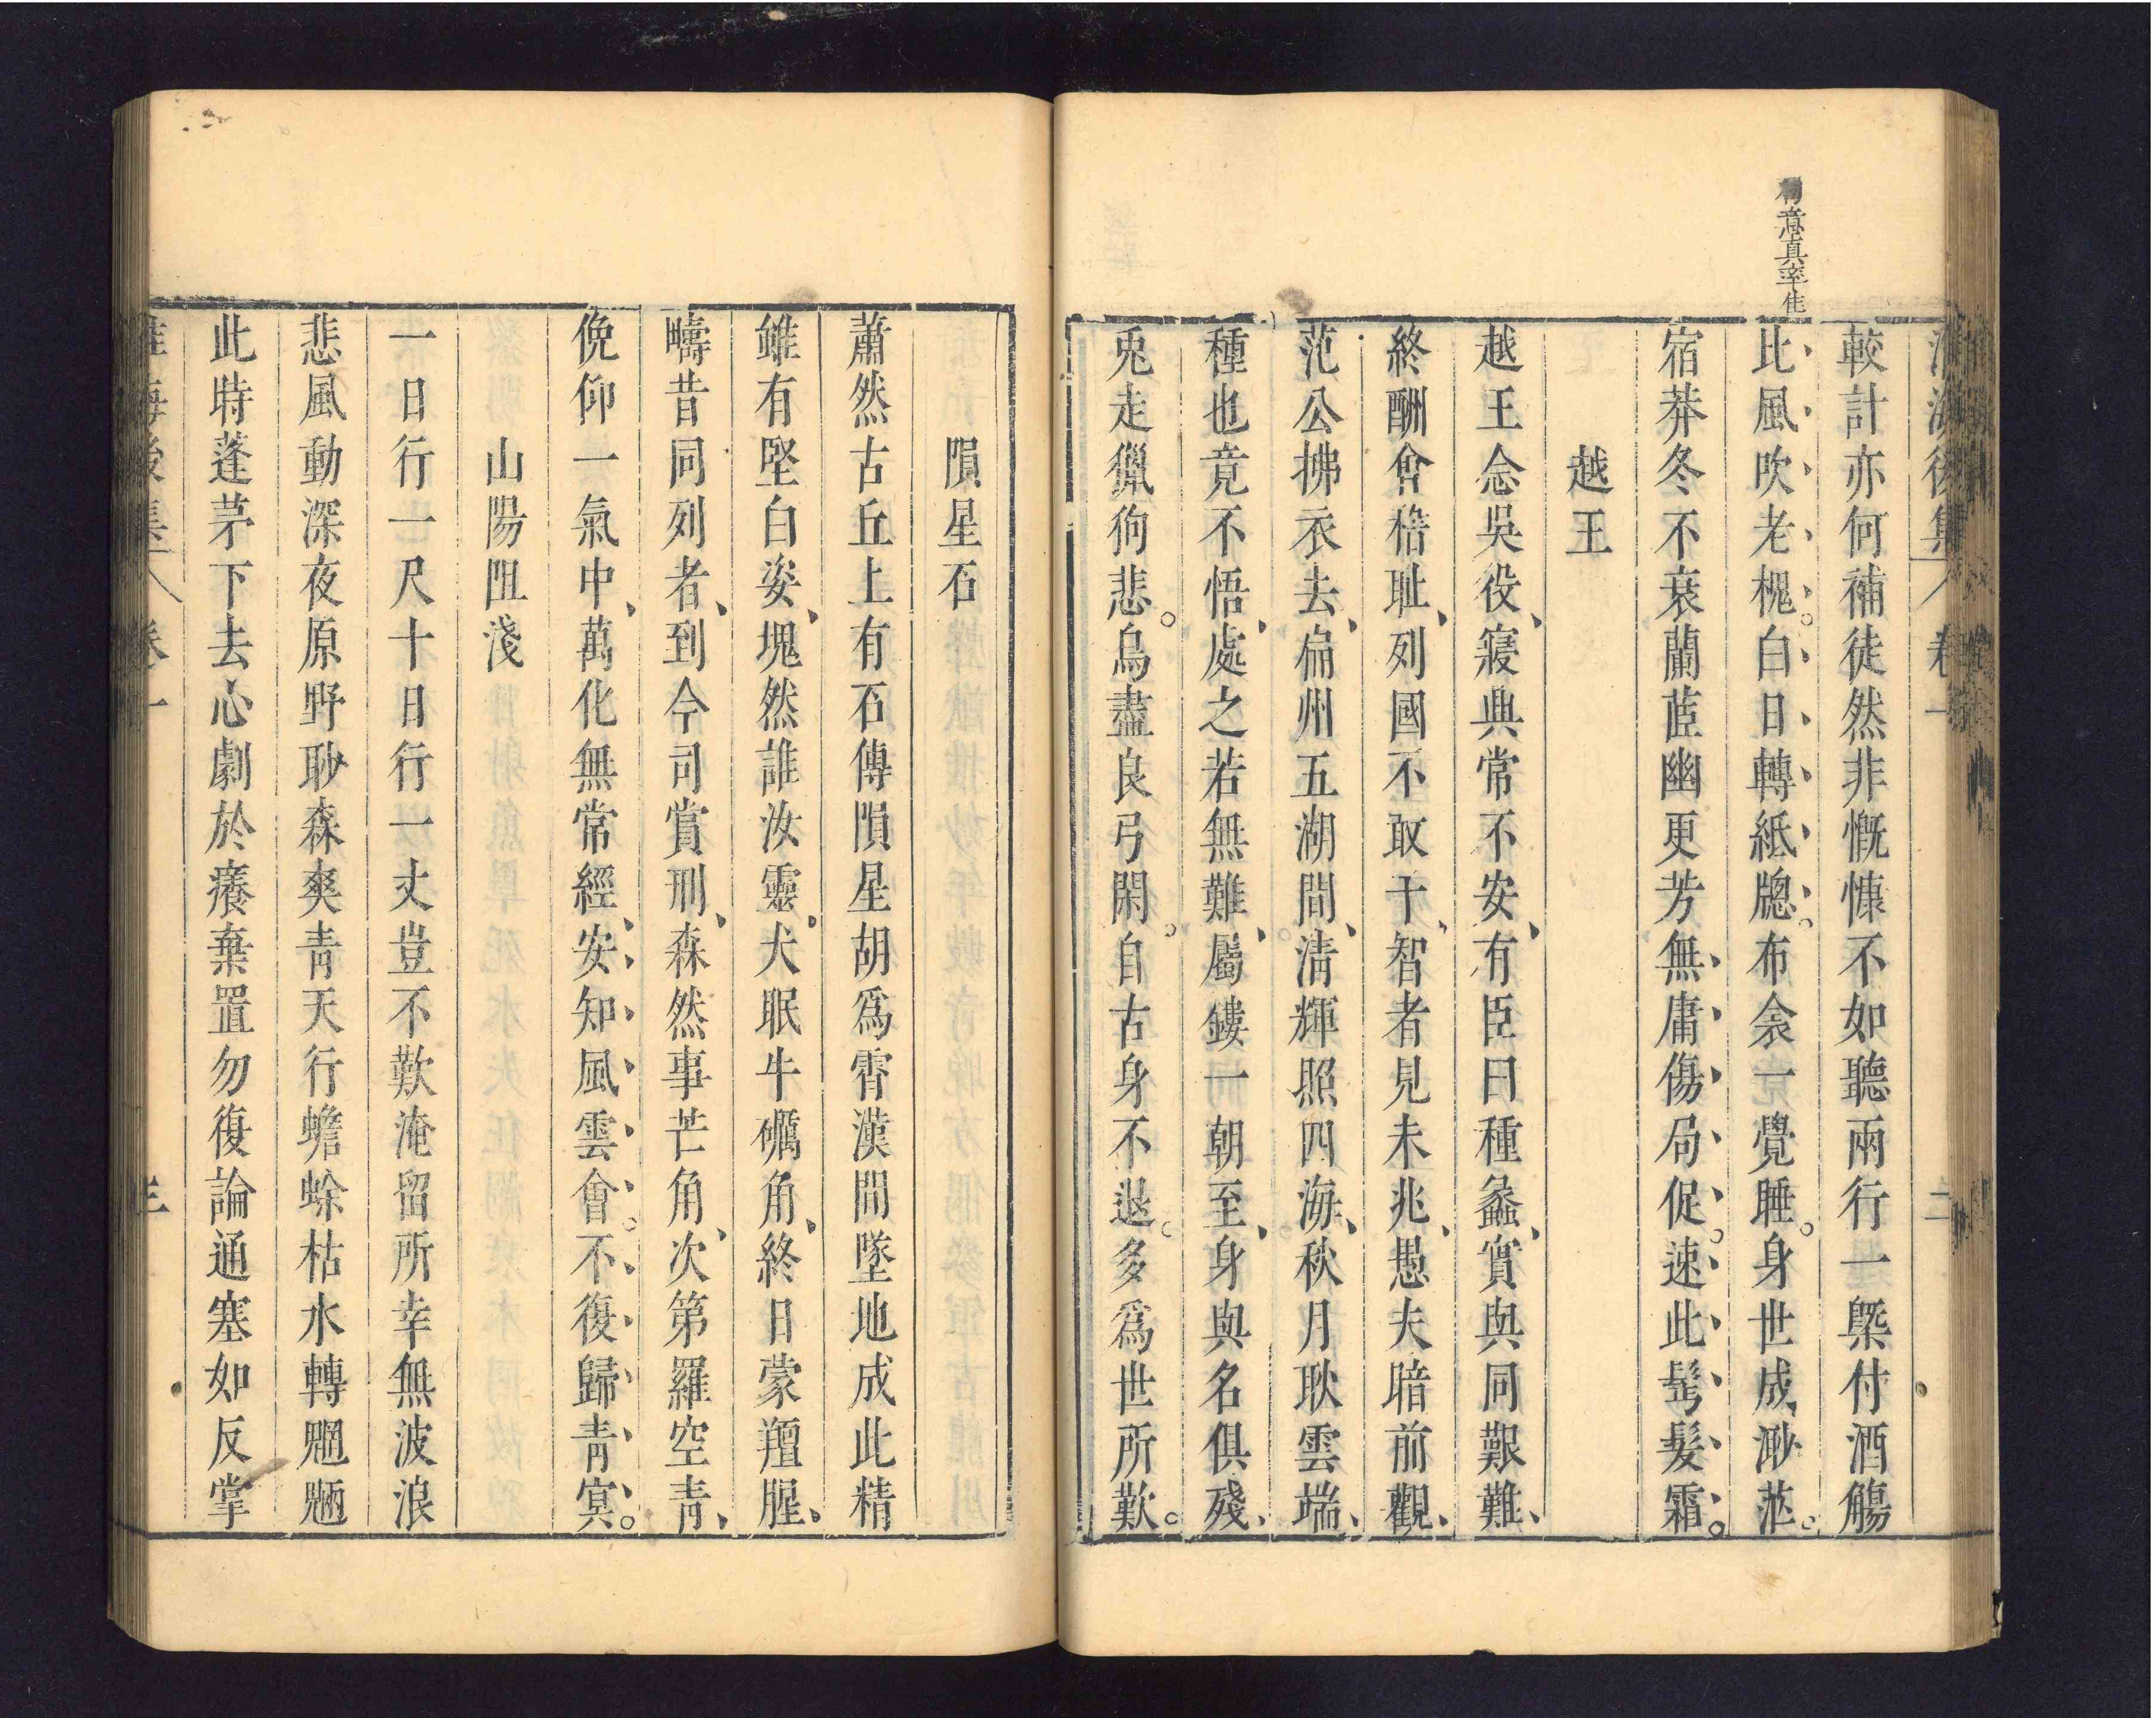 淮海後集 卷一 二
意真率佳
較計亦何補徒然非慨慷不如聽兩行一槩付酒觴
比風吹老槐。白日轉紙牕。布衾一覺睡。身世成渺茫。
宿莽冬不衰蘭茝幽更芳無庸傷局促。速此髩髮霜。
越王
越王念吳役、寢興常不安、有臣曰種蠡、實與同艱難、
終酬會稽耻、列國不敢干、智者見未兆、愚夫暗前觀、
范公拂衣去、扁舟五湖間、清輝照四海、秋月耿雲端、
種也竟不悟、處之若無難、屬鏤一朝至、身與名俱殘、
兎走獵狗悲。鳥盡良弓閑。自古身不退。多爲世所歎。
隕星石
蕭然古丘上有石傳隕星胡爲霄漢間墜地成此精
雖有堅白姿、塊然誰汝靈、犬眠牛礪角、終日蒙羶腥、
疇昔同列者、到今司賞刑、森然事芒角、次第羅空青、
俛仰一氣中、萬化無常經、安知風雲會。不復歸青冥。
山陽阻淺
一日行一尺十日行一丈豈不歎淹留所幸無波浪
悲風動深夜原野眇森爽青天行蟾蜍枯水轉魍魎
此時蓬茅下去心劇於癢棄置勿復論通塞如反掌
淮海後集 卷一 三